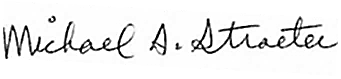 Michael S. Straeter